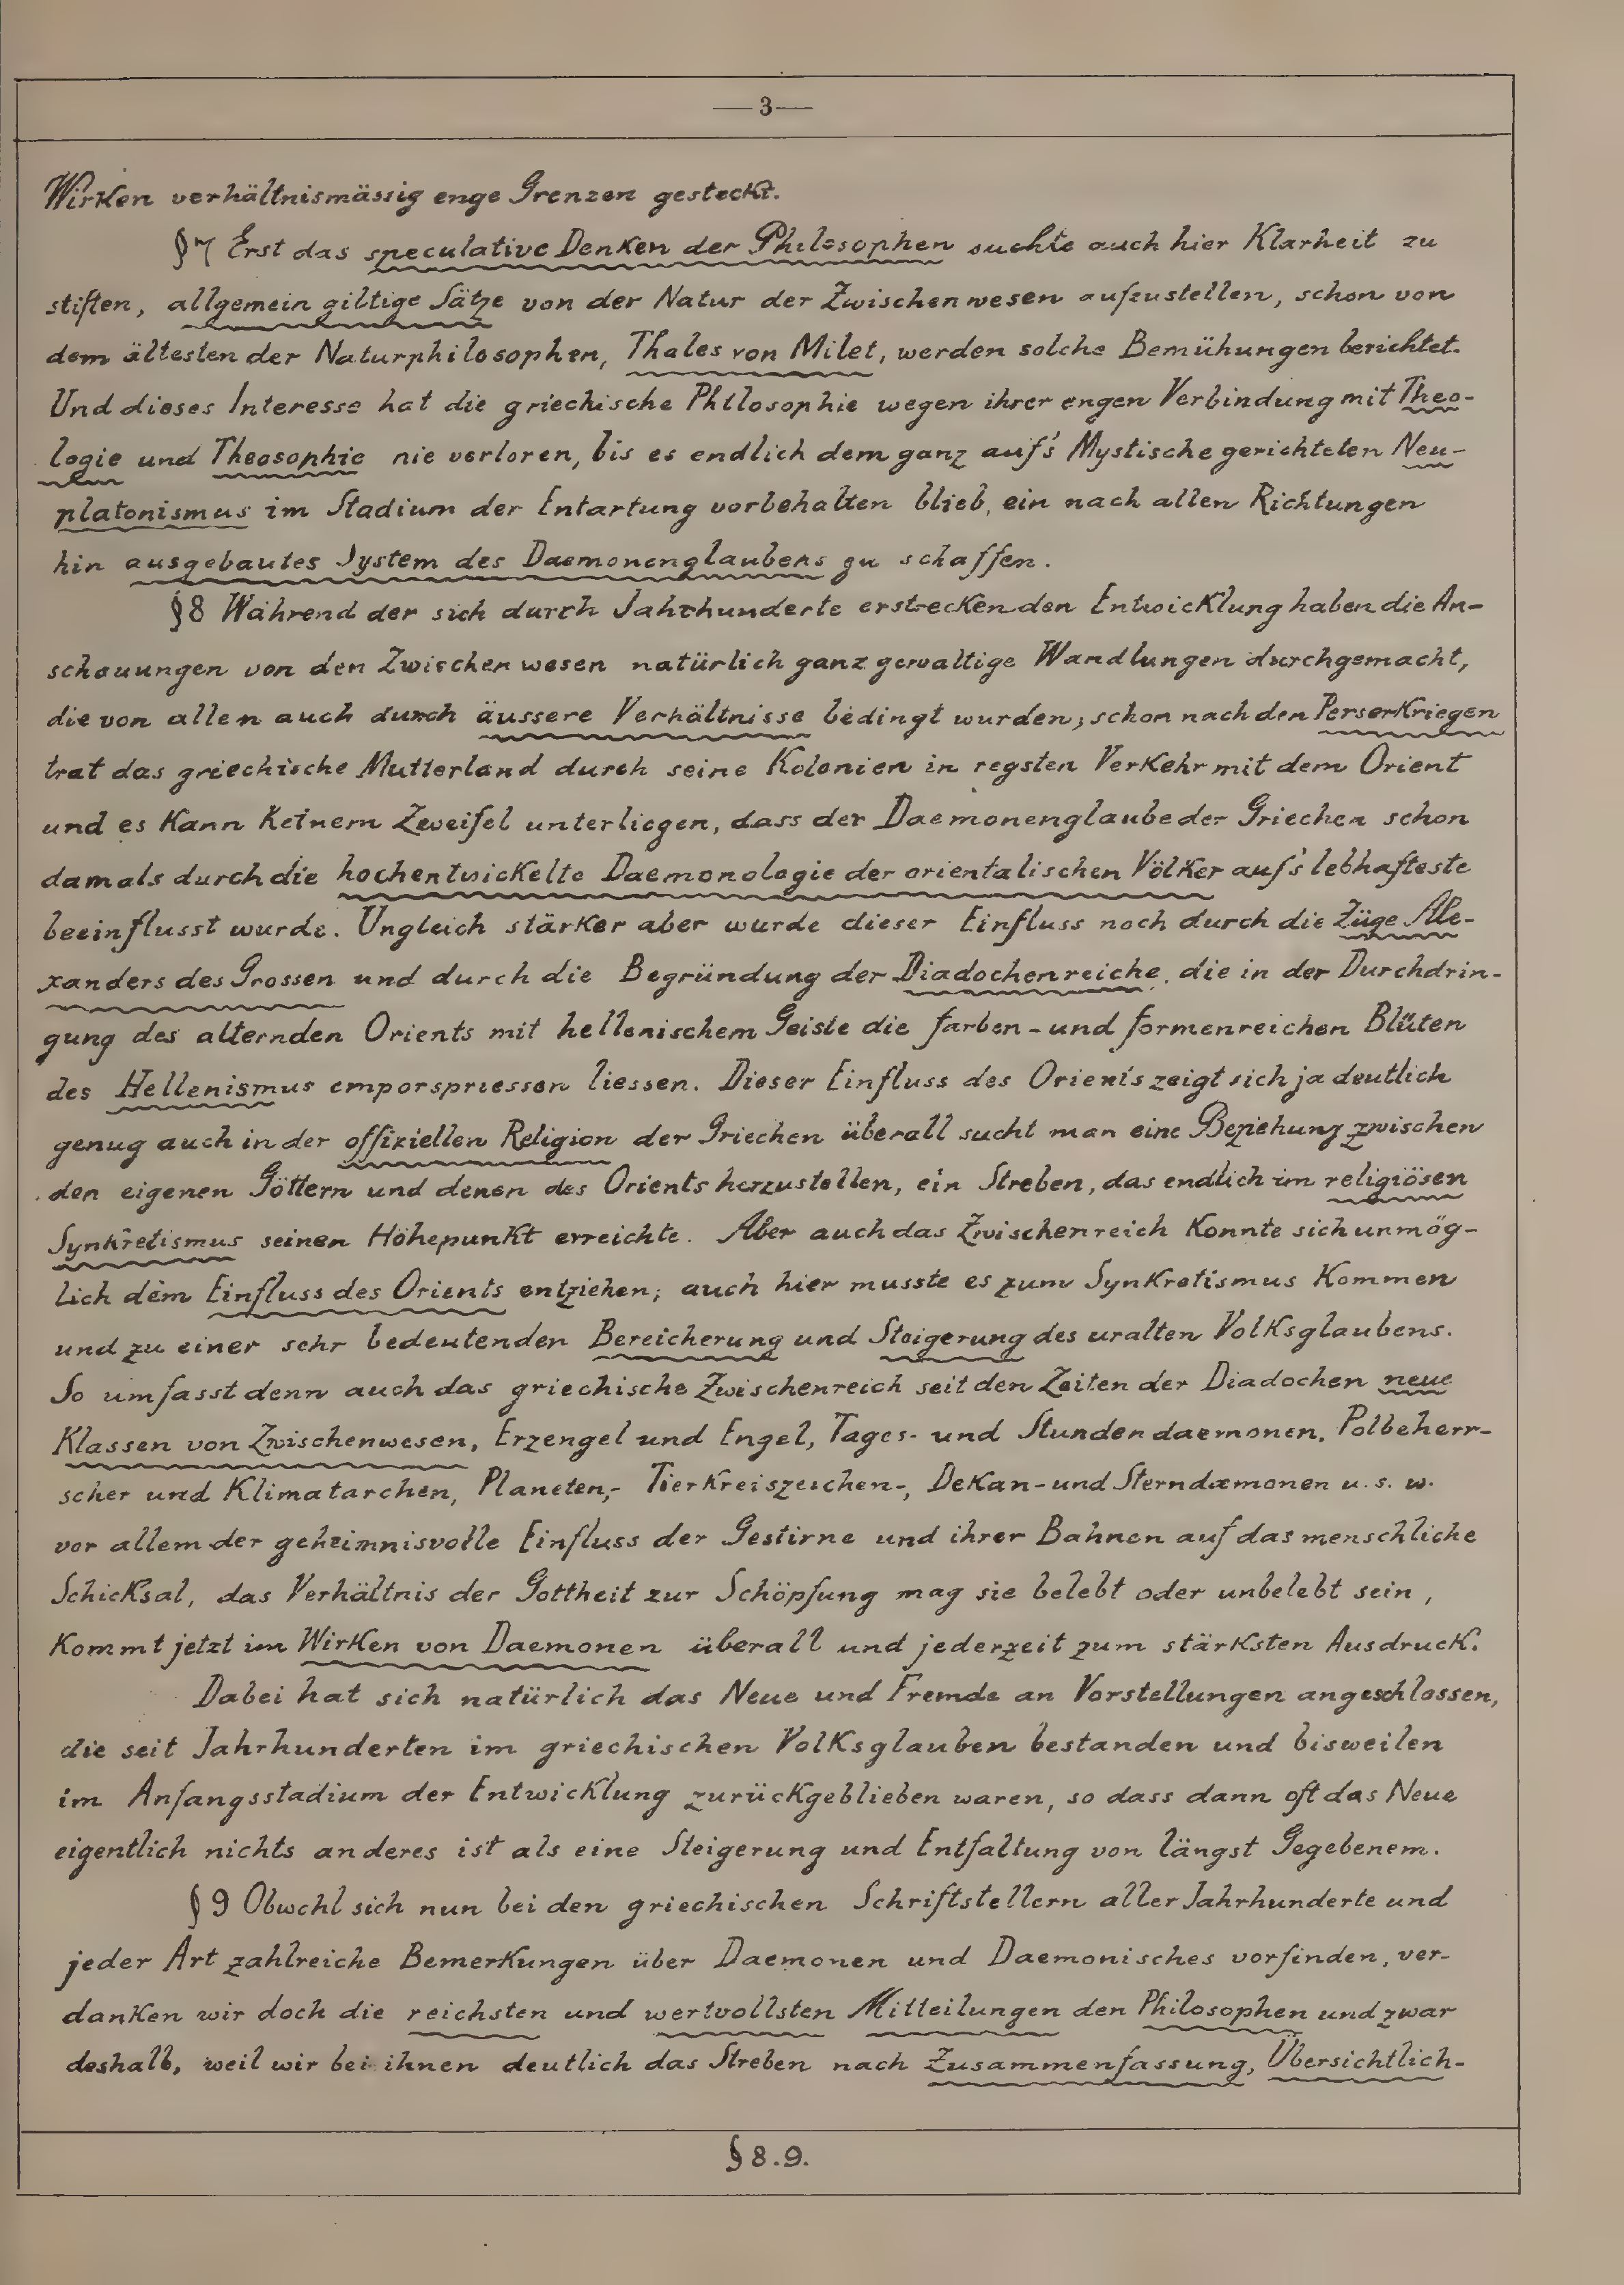 — 3 —
Wirken verhältnismässig enge Grenzen gesteckt.
§7 Erst das speculative Denken der Philosophen suchte auch hier Klarheit zu
stiften, allgemein giltige Sätze von der Natur der Zwischenwesen aufzustellen, schon von
dem ältesten der Naturphilosophen, Thales von Milet, werden solche Bemühungen berichtet.
Und dieses Interesse hat die griechische Philosophie wegen ihrer engen Verbindung mit Theo-
logie und Theosophie nie verloren, bis es endlich dem ganz auf's Mystische gerichteten Neu-
platonismus im Stadium der Entartung vorbehalten blieb, ein nach allen Richtungen
hin ausgebautes System des Daemonenglaubens zu schaffen.
§8 Während der sich durch Jahrhunderte erstreckenden Entwicklung haben die An-
schauungen von den Zwischenwesen natürlich ganz gewaltige Wandlungen durchgemacht,
die von allen auch durch äussere Verhältnisse bedingt wurden; schon nach den Perserkriegen
trat das griechische Mutterland durch seine Kolonien in regsten Verkehr mit dem Orient
und es kann keinem Zweifel unterliegen, dass der Daemonenglaube der Griechen schon
damals durch die hochentwickelte Daemonologie der orientalischen Völker auf's lebhafteste
beeinflusst wurde. Ungleich stärker aber wurde dieser Einfluss noch durch die Züge Ale-
xanders des Grossen und durch die Begründung der Diadochenreiche, die in der Durchdrin-
gung des alternden Orients mit hellenischem Geiste die farben- und formenreichen Blüten
des Hellenismus emporspriessen liessen. Dieser Einfluss des Orients zeigt sich ja deutlich
genug auch in der offiziellen Religion der Griechen überall sucht man eine Beziehung zwischen
den eigenen Göttern und denen des Orients herzustellen, ein Streben, das endlich im religiösen
Synkretismus seinen Höhepunkt erreichte. Aber auch das Zwischenreich konnte sich unmög-
lich dem Einfluss des Orients entziehen; auch hier musste es zum Synkretismus kommen
und zu einer sehr bedeutenden Bereicherung und Steigerung des uralten Volksglaubens.
So umfasst denn auch das griechische Zwischenreich seit den Zeiten der Diadochen neue
Klassen von Zwischenwesen, Erzengel und Engel, Tages- und Stundendaemonen, Polbeherr-
scher und Klimatarchen, Planeten,- Tierkreiszeichen-, Dekan- und Sterndæmonen u. s. w.
vor allem der geheimnisvolle Einfluss der Gestirne und ihrer Bahnen auf das menschliche
Schicksal, das Verhältnis der Gottheit zur Schöpfung mag sie belebt oder unbelebt sein,
kommt jetzt im Wirken von Daemonen überall und jederzeit zum stärksten Ausdruck.
Dabei hat sich natürlich das Neue und Fremde an Vorstellungen angeschlossen,
die seit Jahrhunderten im griechischen Volksglauben bestanden und bisweilen
im Anfangsstadium der Entwicklung zurückgeblieben waren, so dass dann oft das Neue
eigentlich nichts anderes ist als eine Steigerung und Entfaltung von längst Gegebenem.
§ 9 Obwohl sich nun bei den griechischen Schriftstellern aller Jahrhunderte und
jeder Art zahlreiche Bemerkungen über Daemonen und Daemonisches vorfinden, ver-
danken wir doch die reichsten und wertvollsten Mitteilungen den Philosophen und zwar
deshalb, weil wir bei ihnen deutlich das Streben nach Zusammenfassung, Übersichtlich-
§ 8.9.